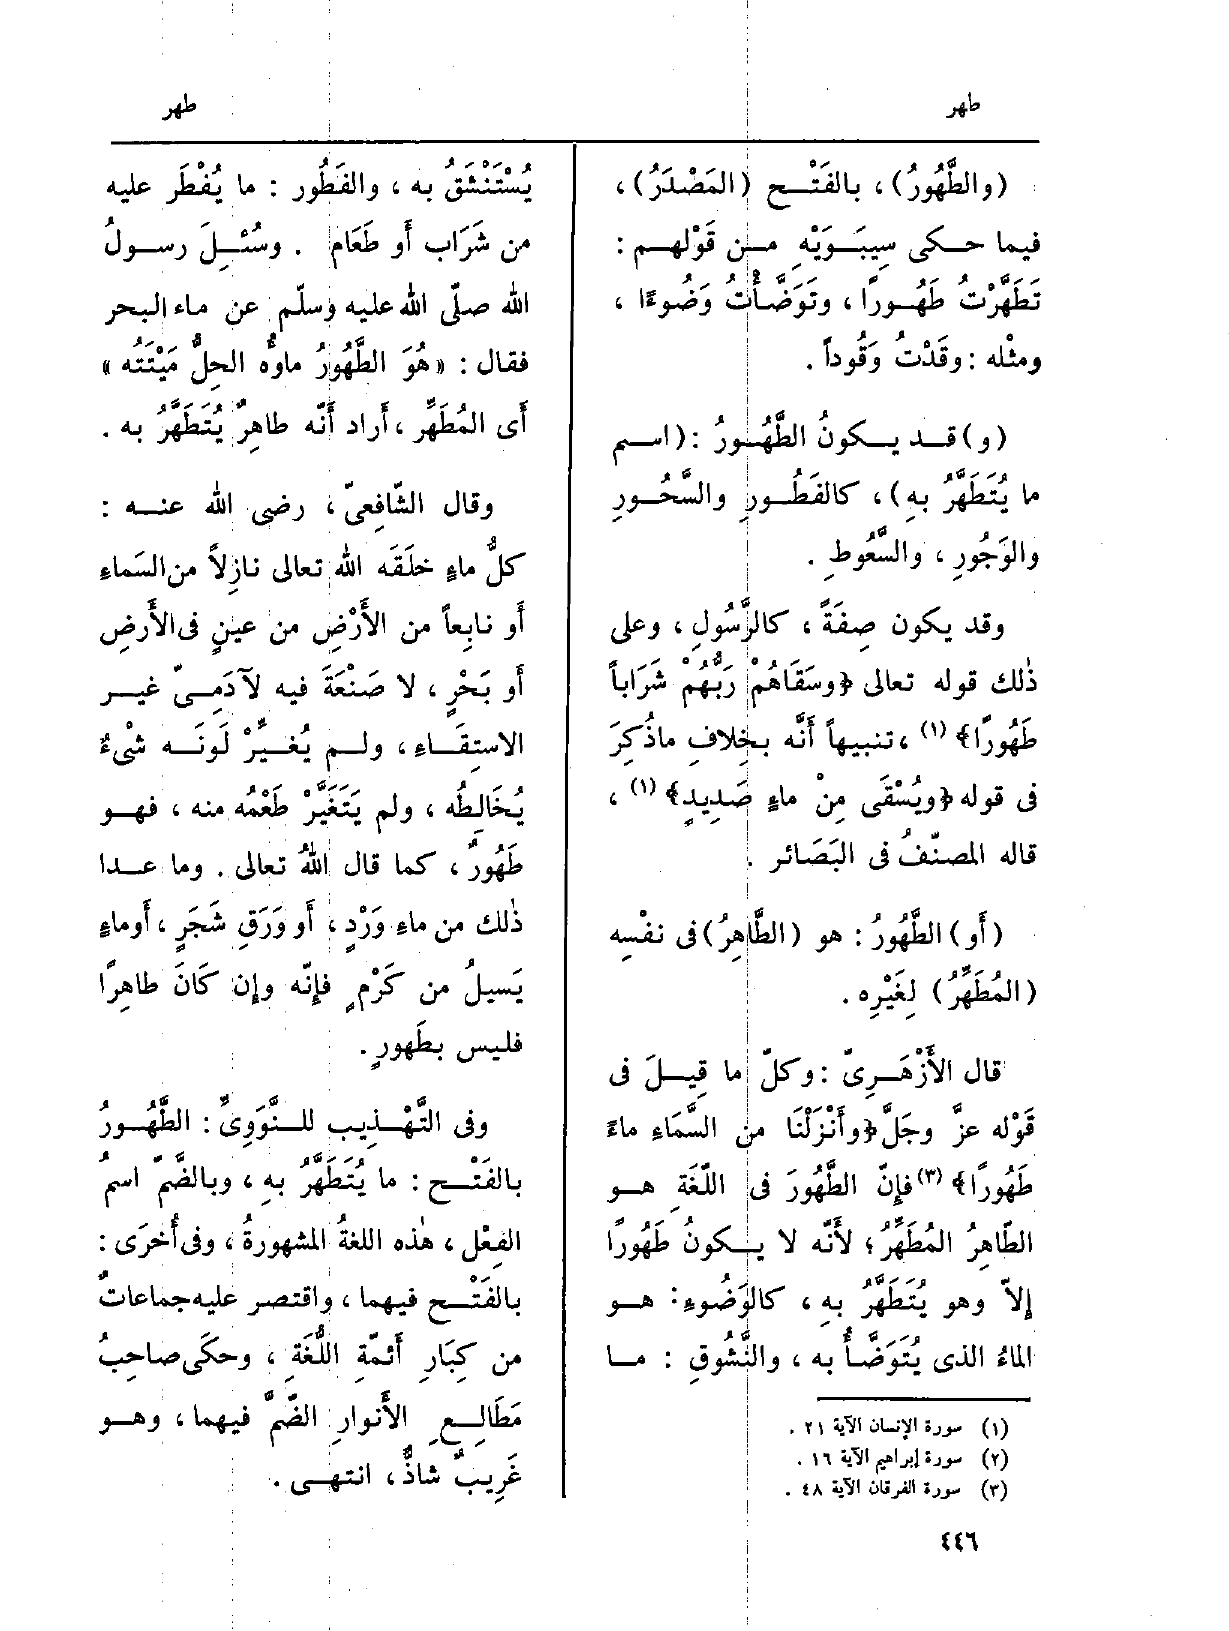 طهر
طهر
(والطَّهُورُ)، بالفَتْـح (المَصْدَرُ)،
فيما حـكى سِيبَـوَيْهِ مـن قَوْلهـم :
تَطَهَّرْتُ طَهُـورًا، وتَوَضَّأْتُ وَضُوءًا ،
ومثْله : وقَدْتُ وَقُوداً .
(و) قـد يـكونُ الطَّهُـورُ : (اسـم
ما يُتَطَهَّرُ بهِ)، كالفَطُـورِ والسَّحُـورِ
والوَجُورِ ، والسَّعُوطِ .
وقد يكون صِفَةً ، كالرَّسُولِ ، وعلى
ذٰلك قوله تعالى ﴿وسَقَاهُمْ رَبُّهُمْ شَرَاباً
طَهُورًا﴾ (١) ، تنبيهاً أَنَّه بخِلافِ ماذُكِرَ
فى قوله ﴿ويُسْقَى مِنْ ماءٍ صَدِيدٍ﴾ (١) ،
قاله المصنّفُ فى البَصَائر .
(أَو) الطَّهُورُ : هو (الطَّاهِرُ) فى نفْسِه
(المُطَهِّرُ) لِغَيْرِه .
قال الأَزْهَـرِىّ : وكلّ ما قِيـلَ فى
قَوْله عزَّ وجَلَّ ﴿وأَنْزَلْنَا من السَّمَاءِ ماءً
طَهُورًا﴾ (٣) فإِنّ الطَّهُورَ فى اللّغَةِ هـو
الطّاهِرُ المُطَهِّرُ ؛ لأَنّه لا يـكونُ طَهُورًا
إِلاّ وهو يُتَطَهَّرُ بهِ ، كالوَضُوءِ : هـو
الماءُ الذى يُتَوَضَّأُ به ، والنَّشُوقِ : مـا
(١) سورة الإنسان الآية ٢١ .
(٢) سورة إبراهيم الآية ١٦ .
(٣) سورة الفرقان الآية ٤٨ .
يُسْتَنْشَقُ به ، والفَطُور : ما يُفْطَر عليه
من شَرَاب أَو طَعَام . وسُئِـلَ رسـولُ
الله صلّى الله عليه وسلّم عن ماء البحر
فقال : «هُوَ الطَّهُورُ ماؤُه الحِلُّ مَيْتَتُه»
أَى المُطَهِّر ، أَراد أَنّه طاهِرٌ يُتَطَهَّرُ به .
وقال الشّافِعِىّ ، رضى الله عنـه :
كلُّ ماءٍ خلَقَه الله تعالى نازِلاً من السَماء
أَو نابِعاً من الأَرْضِ من عينٍ فى الأَرضِ
أَو بَحْرٍ ، لا صَنْعَةَ فيه لآدَمِـىّ غيـر
الاستِقَـاءِ ، ولـم يُغـيِّرْ لَونَـه شىءٌ
يُخَالِطُه ، ولم يَتَغَيَّرْ طَعْمُه منه ، فهـو
طَهُورٌ ، كما قال اللهُ تعالى . وما عـدا
ذٰلك من ماءِ وَرْدٍ ، أَو وَرَقِ شَجَرٍ ، أَوماءٍ
يَسيلُ من كَرْمٍ فإِنّه وإِن كَانَ طاهِرًا
فليس بطَهورٍ .
وفى التَّهْـذيبِ للـنَّوَوِىّ : الطَّهُـورُ
بالفَتْـح : ما يُتَطَهَّرُ بهِ ، وبالضّمّ اسمُ
الفِعْلِ ، هٰذه اللغةُ المشهورةُ ، وفى أُخرَى :
بالفَتْـح فيهما ، واقتصر عليه جماعاتٌ
من كِبَارِ أَئمّةِ اللُّغَةِ ، وحكَى صاحِبُ
مَطَالِـعِ الأَنوارِ الضَّمَّ فيهما ، وهـو
غَرِيبٌ شاذٌّ ، انتهـى .
٤٤٦